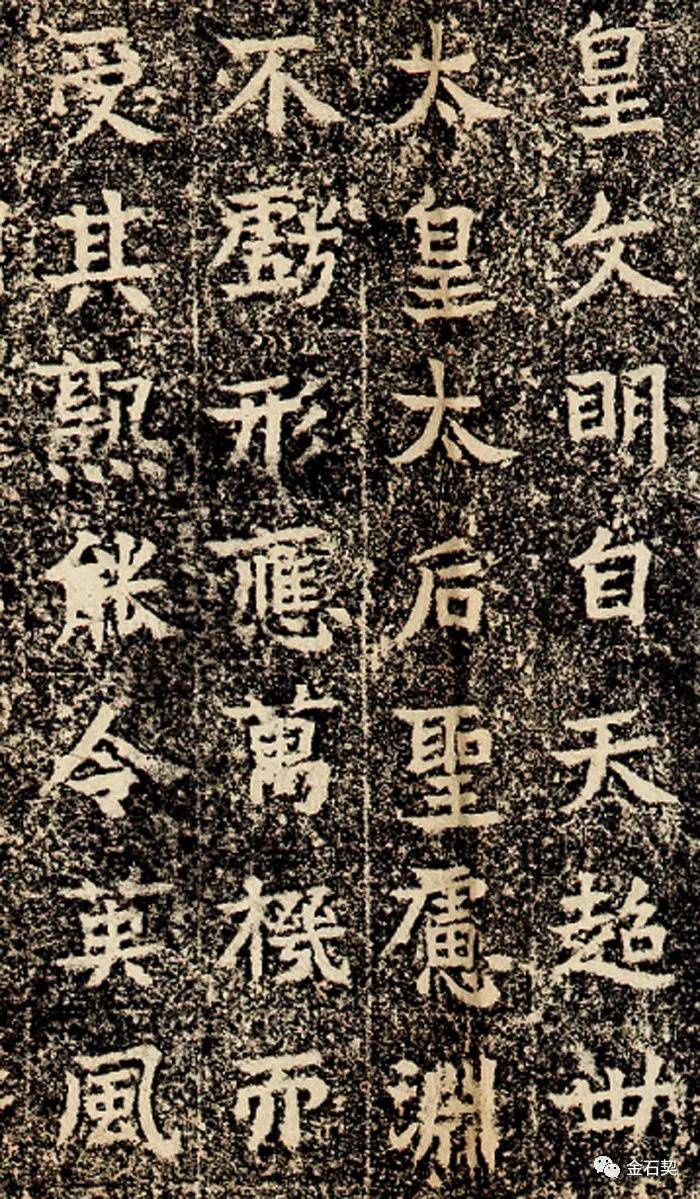 皇文明自天超世
太皇太后聖慮淵
不虧形應萬機而
受其熟能令英風
金石契